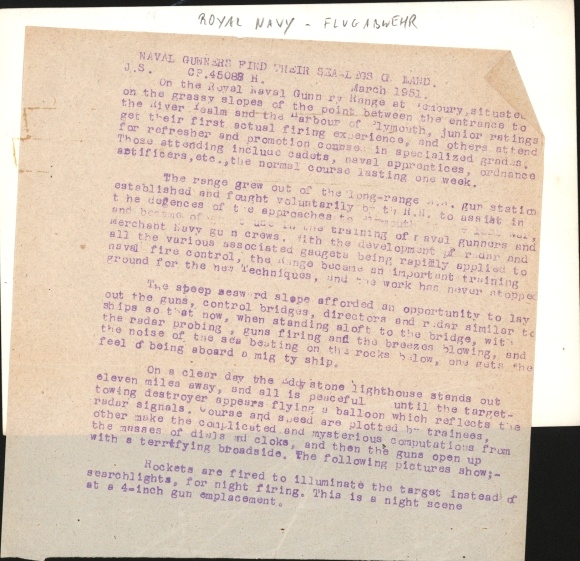 ROYAL NAVY - FLUGABWEHR
NAVAL GUNNERS FIND THEIR SEA-LEGS ON LAND.
J.S. CP.45088 H. March 1951.
On the Royal Naval Gunnery Range at situated
on the grassy slopes of the point between the entrance to
the River Yealm and the Harbour of Plymouth, junior ratings
get their first actual firing experience, and others attend
for refresher and promotion courses in specialized grades.
Those attending include cadets, naval apprentices, ordnance
artificers,etc.,the normal course lasting one week.
The range grew out of the long-range gun station
established and fought voluntarily by the R.N. to assist in
t he defences of the approaches to
and in the training of naval gunners and
Merchant Navy gun crews. With the development of radar and
all the various associated gadgets being rapidly applied to
naval fire control, the Range became an important training
ground for the new Techniques, and the work has never stopped
The steep seaward slope afforded an opportunity to lay
out the guns, control bridges, directors and radar similar to
ships so that now, when standing aloft to the bridge, with
the radar probing , guns firing and the breezes blowing, and
the noise of the sea beating on the rocks below, one gets the
feel of being aboard a mig ty ship.
On a clear day the Eddystone lighthouse stands out
eleven miles away, and all is peaceful until the target-
towing destroyer appears flying a balloon which reflects the
radar signals. Course and speed are plotted by trainees,
other make the complicated and mysterious computations from
the masses of dials and cloks, and then the guns open up
with a terrifying broadside. The following pictures show;-
Rockets are fired to illuminate the target instead of
searchlights, for night firing. This is a night scene
at a 4-inch gun emplacement.